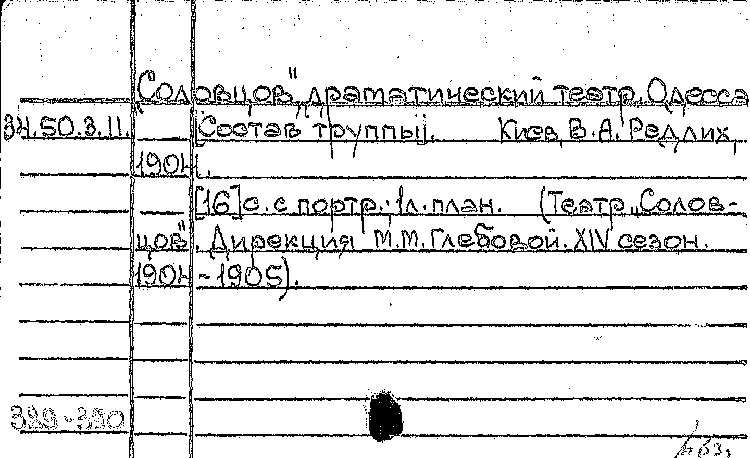 „Соловцов", драматический театр. Одесса
34.50.3.11. [Состав труппы]. Киев, В.А. Редлих,
1904.
[16]с. с портр.; 1л. план. (Театр „Солов-
цов". Дирекция М.М. Глебовой. XIV сезон.
1904-1905).
389-390